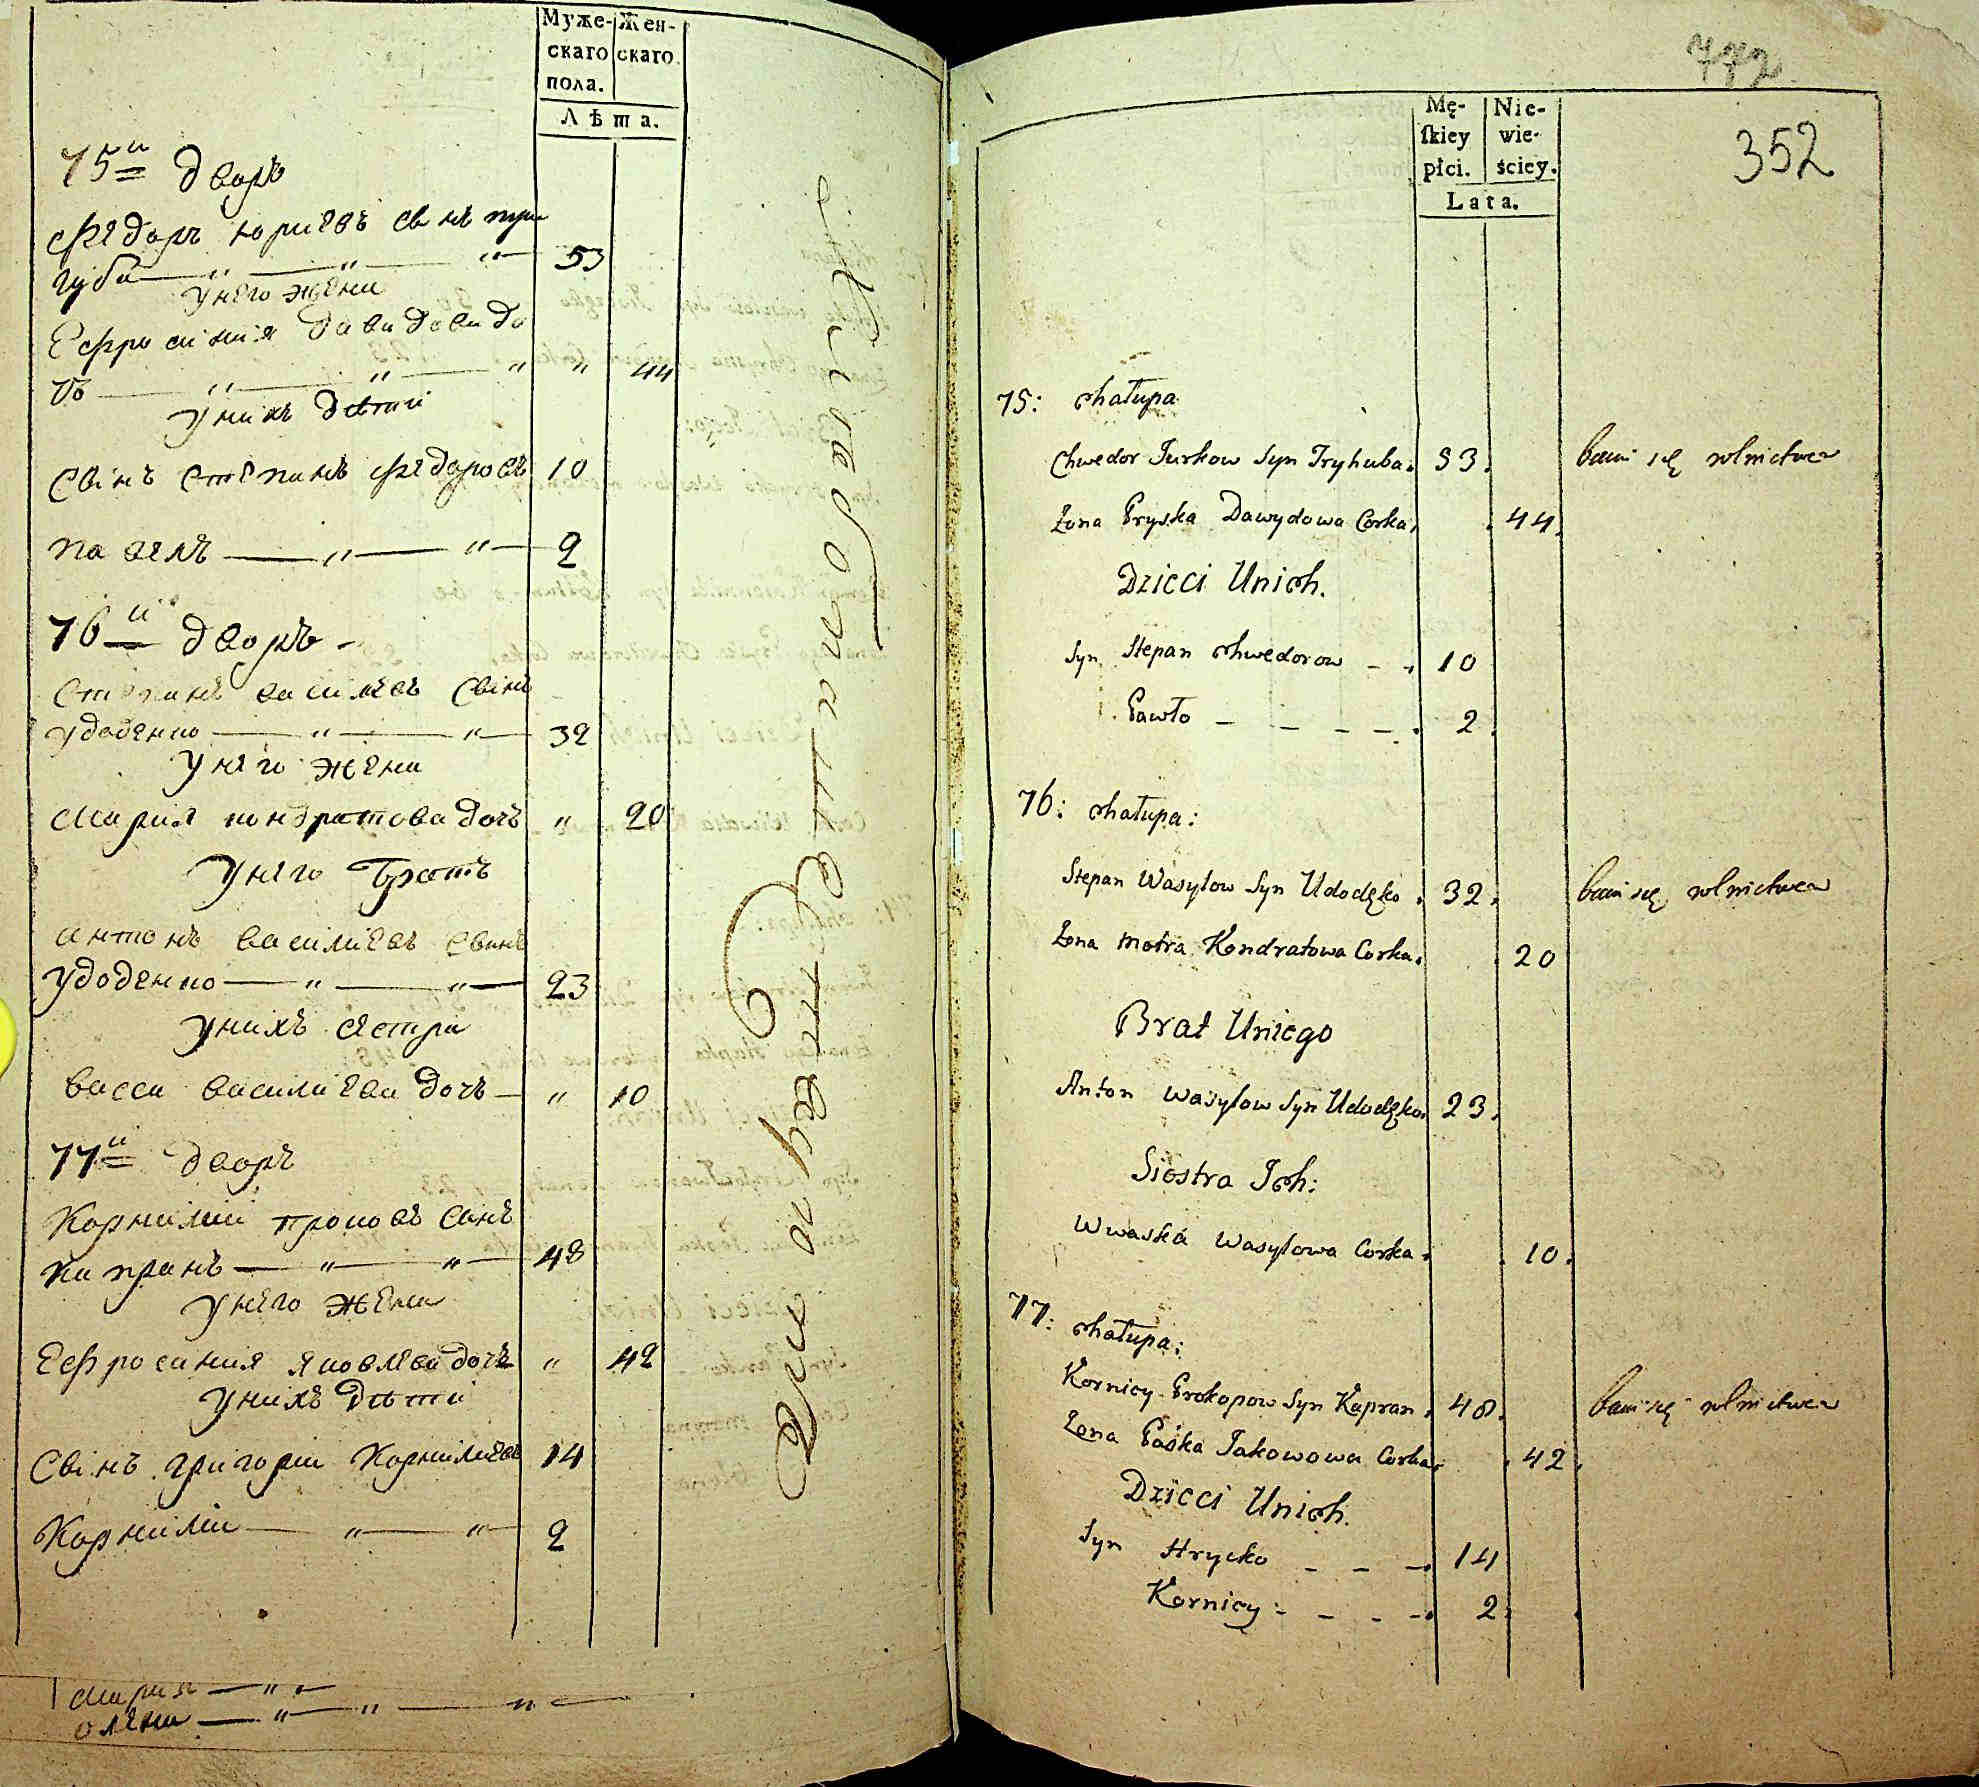 Муже-
скаго
пола.
Жен-
скаго
Лѣта.
75й дворъ
Федоръ юриевъ свнъ три
губа — " — " — " 53
у него жена
Ефросиния давидова до
чъ — " — " — " " 44
у нихъ дѣти
Свінъ степанъ федоровъ 10
павелъ — " — " — 2
76й дворъ
Степанъ василевъ свінъ
удоденко — " — " — 32
у него жена
мария кондратова дочъ " 20
у него братъ
антонъ василиевъ свинъ
удоденко — " — " — 23
у нихъ сестра
васса василиева дочъ — " 10
77й дворъ
Корнилий проковъ синъ
капранъ — " — " — 48
у него жена
Ефросиния яковлева дочъ " 42
у нихъ дѣти
Свінъ григорий Корнилиевъ 14
Корнилий — " — " — 2
мария — " —
олена — " — " — "
772
352
Mę-
skiey
płci.
Nie-
wie-
ściey.
Lata.
75: Chałupa
Chwedor Jurkow Syn Tryhuba. 53. bawi się rolnictwem
Żona Pryska Dawydowa Corka. 44.
Dzieci Unich.
Syn Stepan Chwedorow - - 10
Pawło - - - - - 2.
76: Chałupa:
Stepan Wasylow Syn Udodęko. 32. bawi się rolnictwem
Żona Motra Kondratowa Corka. 20
Brat Uniego
Anton Wasylow Syn Udodęko. 23.
Siostra Ich:
Wwaska Wasylowa Corka. 10.
77: Chałupa:
Kornicy Prokopow Syn Kapran. 48. bawi się rolnictwem
Żona Paska Jakowowa Corka. 42.
Dzieci Unich.
Syn Hrycko - - - 14
Kornicy - - - - 2.